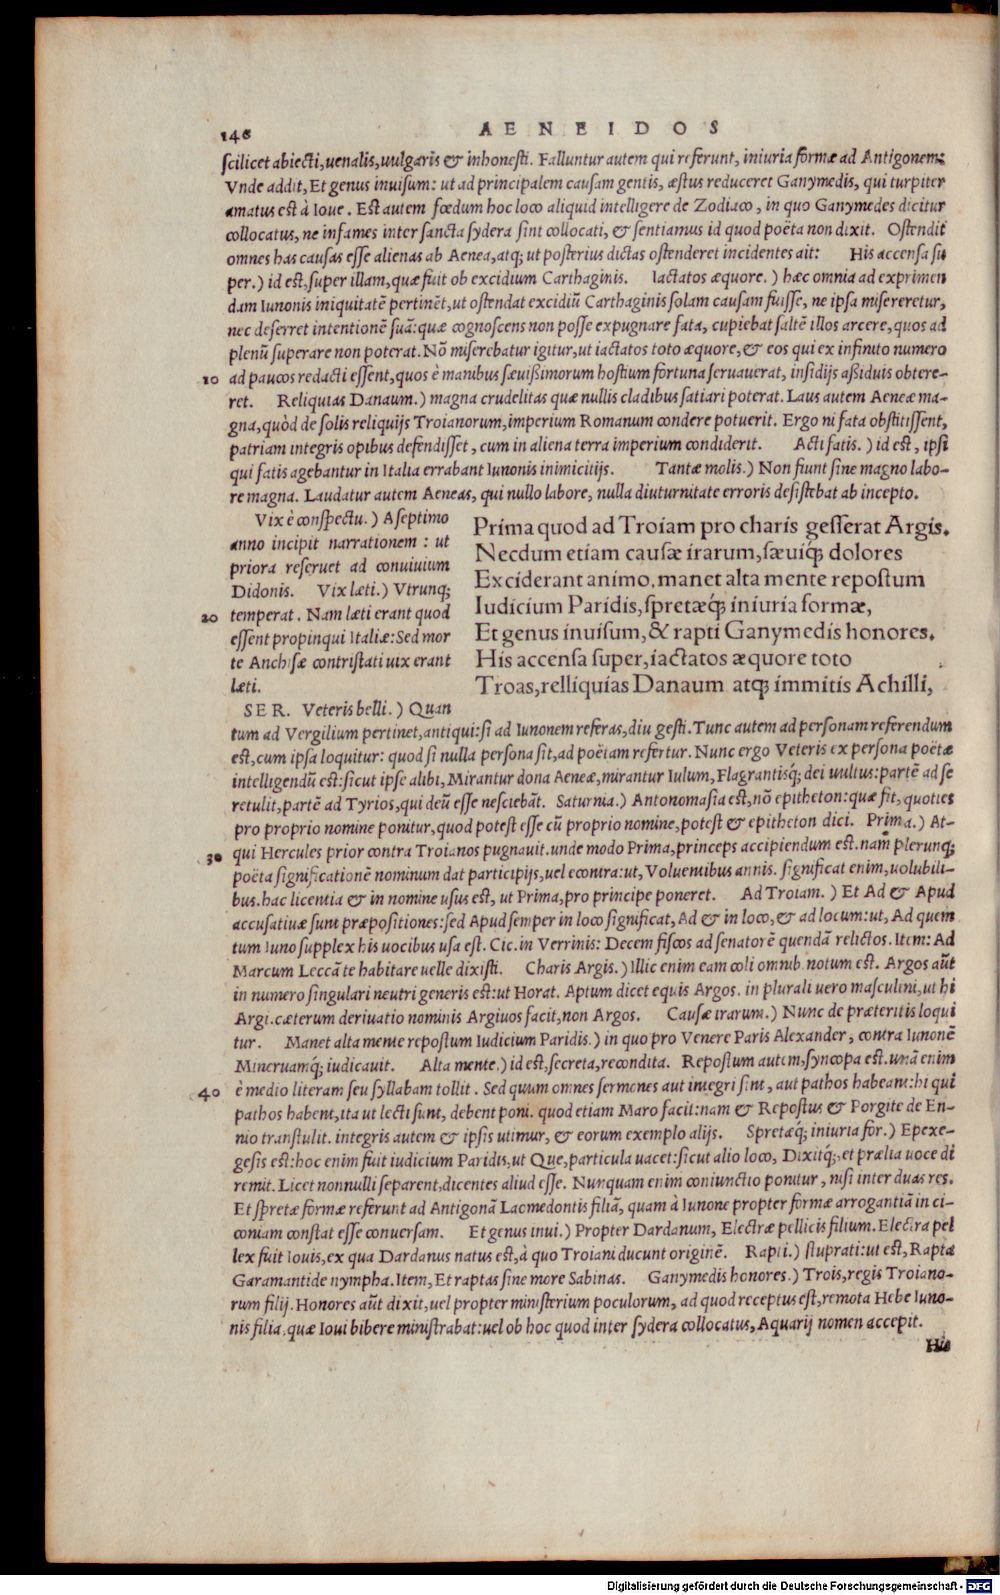 146
AENEIDOS
ſcilicet abiecti, uenalis, uulgaris & inhoneſti. Falluntur autem qui referunt, iniuria formæ ad Antigonem:
Vnde addit, Et genus inuiſum: ut ad principalem cauſam gentis, æſtus reduceret Ganymedis, qui turpiter
amatus est à Ioue. Eſt autem fœdum hoc loco aliquid intelligere de Zodiaco, in quo Ganymedes dicitur
collocatus, ne infames inter ſancta ſydera ſint collocati, & ſentiamus id quod poëta non dixit. Oſtendit
omnes has cauſas eſſe alienas ab Aenea, atq; ut poſterius dictas oſtenderet incidentes ait: His accenſa ſu
per.) id eſt, ſuper illam, quæ fuit ob excidium Carthaginis. Iactatos æquore.) hæc omnia ad exprimen
dam Iunonis iniquitatē pertinēt, ut oſtendat excidiū Carthaginis ſolam cauſam fuiſſe, ne ipſa miſereretur,
nec deſerret intentionē ſuā: quæ cognoſcens non poſſe expugnare fata, cupiebat ſaltē illos arcere, quos ad
plenū ſuperare non poterat. Nō miſerebatur igitur, ut iactatos toto æquore, & eos qui ex infinito numero
10 ad paucos redacti eſſent, quos è manibus ſæuißimorum hoſtium fortuna ſeruauerat, inſidijs aßiduis obtere-
ret. Reliquias Danaum.) magna crudelitas quæ nullis cladibus ſatiari poterat. Laus autem Aeneæ ma-
gna, quòd de ſolis reliquijs Troianorum, imperium Romanum condere potuerit. Ergo ni fata obſtitiſſent,
patriam integris opibus defendiſſet, cum in aliena terra imperium condiderit. Acti fatis.) id eſt, ipſi
qui fatis agebantur in Italia errabant Iunonis inimicitijs. Tantæ molis.) Non fiunt ſine magno labo-
re magna. Laudatur autem Aeneas, qui nullo labore, nulla diuturnitate erroris deſiſtebat ab incepto.
Vix è conſpectu.) A ſeptimo
anno incipit narrationem: ut
priora reſeruet ad conuiuium
Didonis. Vix læti.) Vtrunq;
20 temperat. Nam læti erant quod
eſſent propinqui Italiæ: Sed mor
te Anchiſæ contriſtati uix erant
læti.
Prima quod ad Troiam pro charis geſſerat Argis.
Necdum etiam cauſæ irarum, ſæuiq́; dolores
Exciderant animo, manet alta mente repoſtum
Iudicium Paridis, ſpretæq́; iniuria formæ,
Et genus inuiſum, & rapti Ganymedis honores.
His accenſa ſuper, iactatos æquore toto
Troas, relliquias Danaum atq; immitis Achilli,
SER. Veteris belli.) Quan
tum ad Vergilium pertinet, antiqui: ſi ad Iunonem referas, diu geſti. Tunc autem ad perſonam referendum
est, cum ipſa loquitur: quod ſi nulla perſona ſit, ad poëtam refertur. Nunc ergo Veteris ex perſona poëtæ
intelligendū est: ſicut ipſe alibi, Mirantur dona Aeneæ, mirantur Iulum, Flagrantisq́; dei uultus: partē ad ſe
retulit, partē ad Tyrios, qui deū eſſe neſciebāt. Saturnia.) Antonomaſia est, nō epitheton: quæ fit, quoties
pro proprio nomine ponitur, quod poteſt eſſe cū proprio nomine, poteſt & epitheton dici. Prima.) At-
30 qui Hercules prior contra Troianos pugnauit. unde modo Prima, princeps accipiendum est. nam plerunq;
poëta ſignificationē nominum dat participijs, uel econtra: ut, Voluentibus annis. ſignificat enim, uolubili-
bus. hac licentia & in nomine uſus est, ut Prima, pro principe poneret. Ad Troiam.) Et Ad & Apud
accuſatiuæ ſunt præpoſitiones: ſed Apud ſemper in loco ſignificat, Ad & in loco, & ad locum: ut, Ad quem
tum Iuno ſupplex his uocibus uſa eſt. Cic. in Verrinis: Decem fiſcos ad ſenatorē quendā relictos. Item: Ad
Marcum Leccā te habitare uelle dixiſti. Charis Argis.) Illic enim eam coli omnib. notum eſt. Argos aūt
in numero ſingulari neutri generis est: ut Horat. Aptum dicet equis Argos. in plurali uero maſculini, ut hi
Argi. cæterum deriuatio nominis Argiuos facit, non Argos. Cauſæ irarum.) Nunc de præteritis loqui
tur. Manet alta mente repoſtum Iudicium Paridis.) in quo pro Venere Paris Alexander, contra Iunonē
Mineruamq́; iudicauit. Alta mente.) id eſt, ſecreta, recondita. Repoſtum autem, ſyncopa est. unā enim
40 è medio literam ſeu ſyllabam tollit. Sed quum omnes ſermones aut integri ſint, aut pathos habeant: hi qui
pathos habent, ita ut lecti ſunt, debent poni. quod etiam Maro facit: nam & Repoſtus & Porgite de En-
nio tranſtulit. integris autem & ipſis utimur, & eorum exemplo alijs. Spretæq́; iniuria for.) Epexe-
geſis est: hoc enim fuit iudicium Paridis, ut Que, particula uacet: ſicut alio loco, Dixitq́;, et prælia uoce di
remit. Licet nonnulli ſeparent, dicentes aliud eſſe. Nunquam enim coniunctio ponitur, niſi inter duas res.
Et ſpretæ formæ referunt ad Antigonā Laomedontis filiā, quam à Iunone propter formæ arrogantiā in ci-
coniam conſtat eſſe conuerſam. Et genus inui.) Propter Dardanum, Electræ pellicis filium. Electra pel
lex fuit Iouis, ex qua Dardanus natus eſt, à quo Troiani ducunt originē. Rapti.) ſtuprati: ut eſt, Rapta
Garamantide nympha. Item, Et raptas ſine more Sabinas. Ganymedis honores.) Trois, regis Troiano-
rum filij. Honores aūt dixit, uel propter miniſterium poculorum, ad quod receptus eſt, remota Hebe Iuno-
nis filia, quæ Ioui bibere miniſtrabat: uel ob hoc quod inter ſydera collocatus, Aquarij nomen accepit.
His
Digitalisierung gefördert durch die Deutsche Forschungsgemeinschaft - DFG